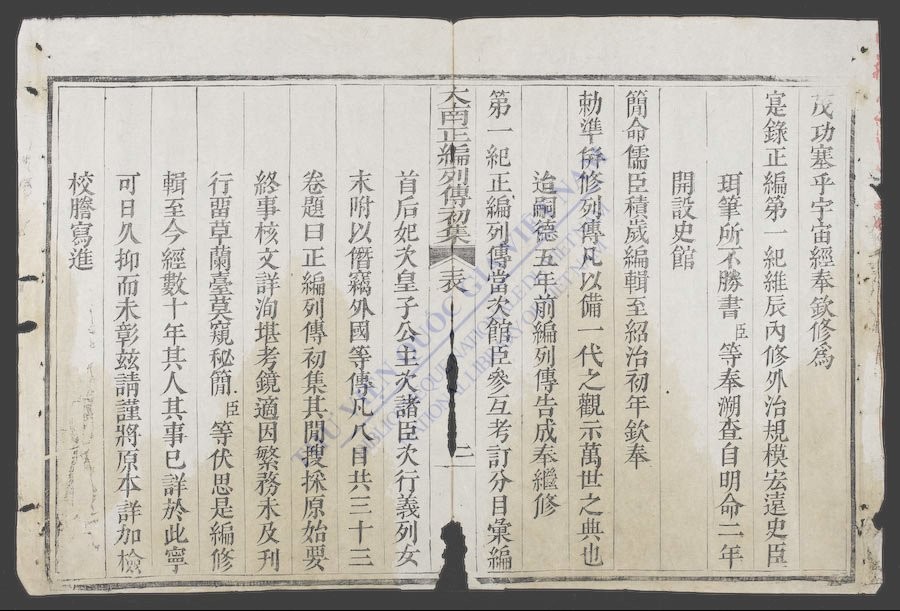 茂功塞乎宇宙經奉欽修爲
寔錄正編第一紀維辰內修外治規模宏遠史臣
珥筆所不勝書臣等奉溯查自明命二年
開設史館
簡命儒臣積歲編輯至紹治初年欽奉
勅準併修列傳凡以備一代之觀示萬世之典也
迨嗣德五年前編列傳告成奉繼修
第一紀正編列傳當次館臣參互考訂分目彙編
大南正編列傳初集 表 二
首后妃次皇子公主次諸臣次行義列女
末附以僭竊外國等傳凡八目共三十三
卷題曰正編列傳初集其閒搜採原始要
終事核文詳洵堪考鏡適因繁務未及刊
行畱草蘭臺莫窺秘簡臣等伏思是編修
輯至今經數十年其人其事已詳於此寧
可日久抑而未彰玆請謹將原本詳加檢
校謄寫進
THƯ VIỆN QUỐC GIA VIỆT NAM
BIBLIOTHÈQUE NATIONALE DU VIETNAM
NATIONAL LIBRARY OF VIETNAM